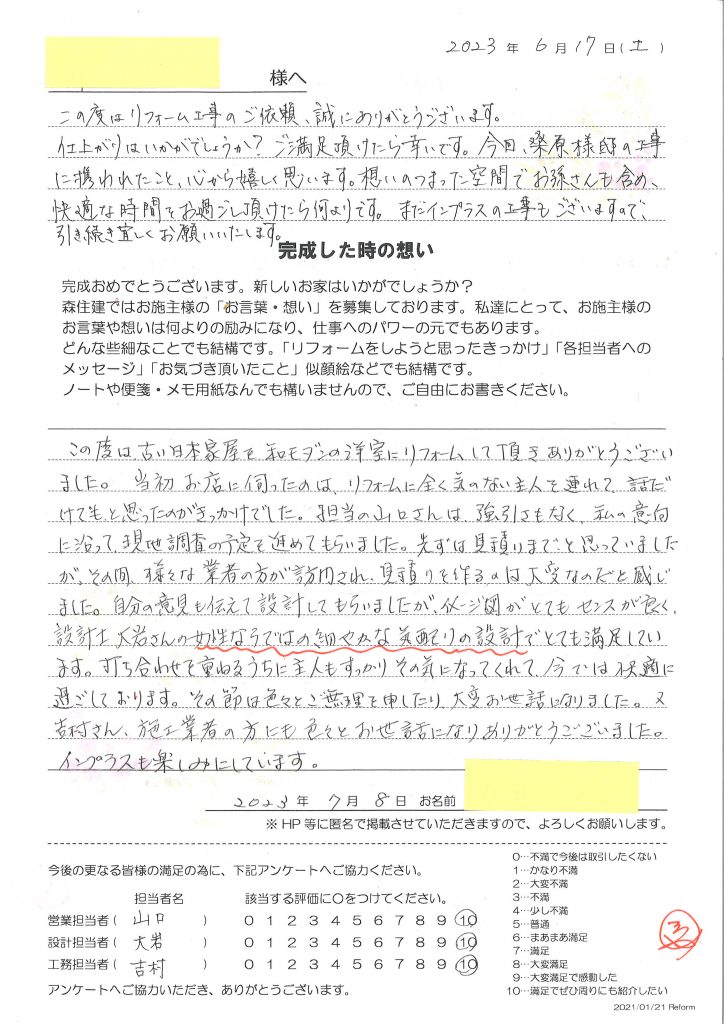 2023年6月17日(土)
様へ
この度はリフォーム工事のご依頼、誠にありがとうございます。
仕上がりはいかがでしょうか？ご満足頂けたら幸いです。今回、桑原様邸の工事
に携われたこと、心から嬉しく思います。想いのつまった空間でお孫さんも含め、
快適な時間をお過ごし頂けたら何よりです。まだインプラスの工事もございますので、
引き続き宜しくお願いいたします。
完成した時の想い
完成おめでとうございます。新しいお家はいかがでしょうか？
森住建ではお施主様の「お言葉・想い」を募集しております。私達にとって、お施主様の
お言葉や想いは何よりの励みになり、仕事へのパワーの元でもあります。
どんな些細なことでも結構です。「リフォームをしようと思ったきっかけ」「各担当者への
メッセージ」「お気づき頂いたこと」似顔絵などでも結構です。
ノートや便箋・メモ用紙なんでも構いませんので、ご自由にお書きください。
この度は、古い日本家屋を和モダンの洋室にリフォームして頂きありがとうござい
ました。当初お店に伺ったのは、リフォームに全く気のない主人を連れて、話だ
けでもと思ったのがきっかけでした。担当の山口さんは、強引さもなく、私の意向
に沿って、現地調査の予定を進めてもらいました。先ずは見積りまでと思っていました
が、その間、様々な業者の方が訪問され、見積りを作るのは大変なのだと感じ
ました。自分の意見も伝えて設計してもらいましたが、イメージ図がとてもセンスが良く、
設計士大岩さんの女性ならではの細やかな気配りの設計でとても満足してい
ます。打ち合わせを重ねるうちに主人もすっかりその気になってくれて、今では快適に
過ごしております。その節は色々とご無理を申したり、大変お世話になりました。又
吉村さん、施工業者の方にも色々とお世話になりありがとうございました。
インプラスも楽しみにしています。
2023年7月8日 お名前
※HP等に匿名で掲載させていただきますので、よろしくお願いします。
今後の更なる皆様の満足の為に、下記アンケートへご協力ください。
担当者名 該当する評価に○をつけてください。
営業担当者( 山口 ) 0 1 2 3 4 5 6 7 8 9 10
設計担当者( 大岩 ) 0 1 2 3 4 5 6 7 8 9 10
工務担当者( 吉村 ) 0 1 2 3 4 5 6 7 8 9 10
アンケートへご協力いただき、ありがとうございます。
0…不満で今後は取引したくない
1…かなり不満
2…大変不満
3…不満
4…少し不満
5…普通
6…まあまあ満足
7…満足
8…大変満足
9…大変満足で感動した
10…満足でぜひ周りにも紹介したい
3
2021/01/21 Reform